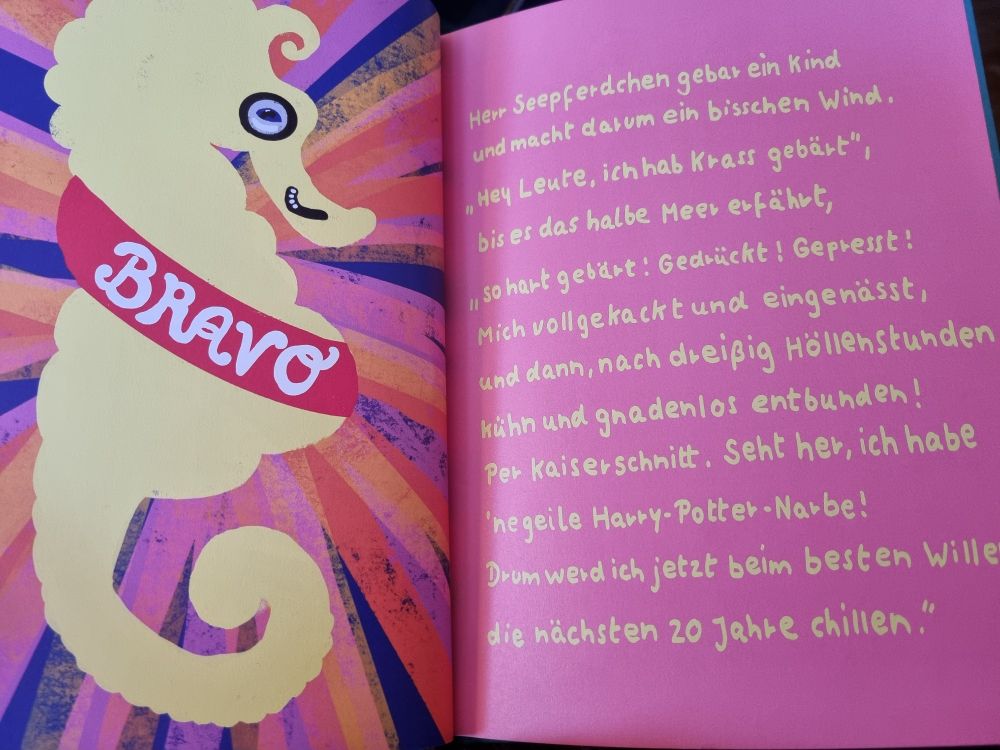 BRAVO
Herr Seepferdchen gebar ein Kind
und macht darum ein bisschen Wind.
„Hey Leute, ich hab krass gebärt",
bis es das halbe Meer erfährt,
„so hart gebärt! Gedrückt! Gepresst!
Mich vollgekackt und eingenässt,
und dann, nach dreißig Höllenstunden
kühn und gnadenlos entbunden!
Per Kaiserschnitt. Seht her, ich habe
'ne geile Harry-Potter-Narbe!
Drum werd ich jetzt beim besten Willen
die nächsten 20 Jahre chillen."